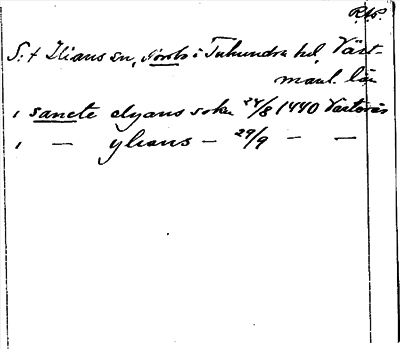 S:t Ilians sn, Norrbo i Tuhundra hd, Väst-
manl. län
i sancte elyans sokn 24/8 1440 Västerås
i — ylians — 29/9 — —